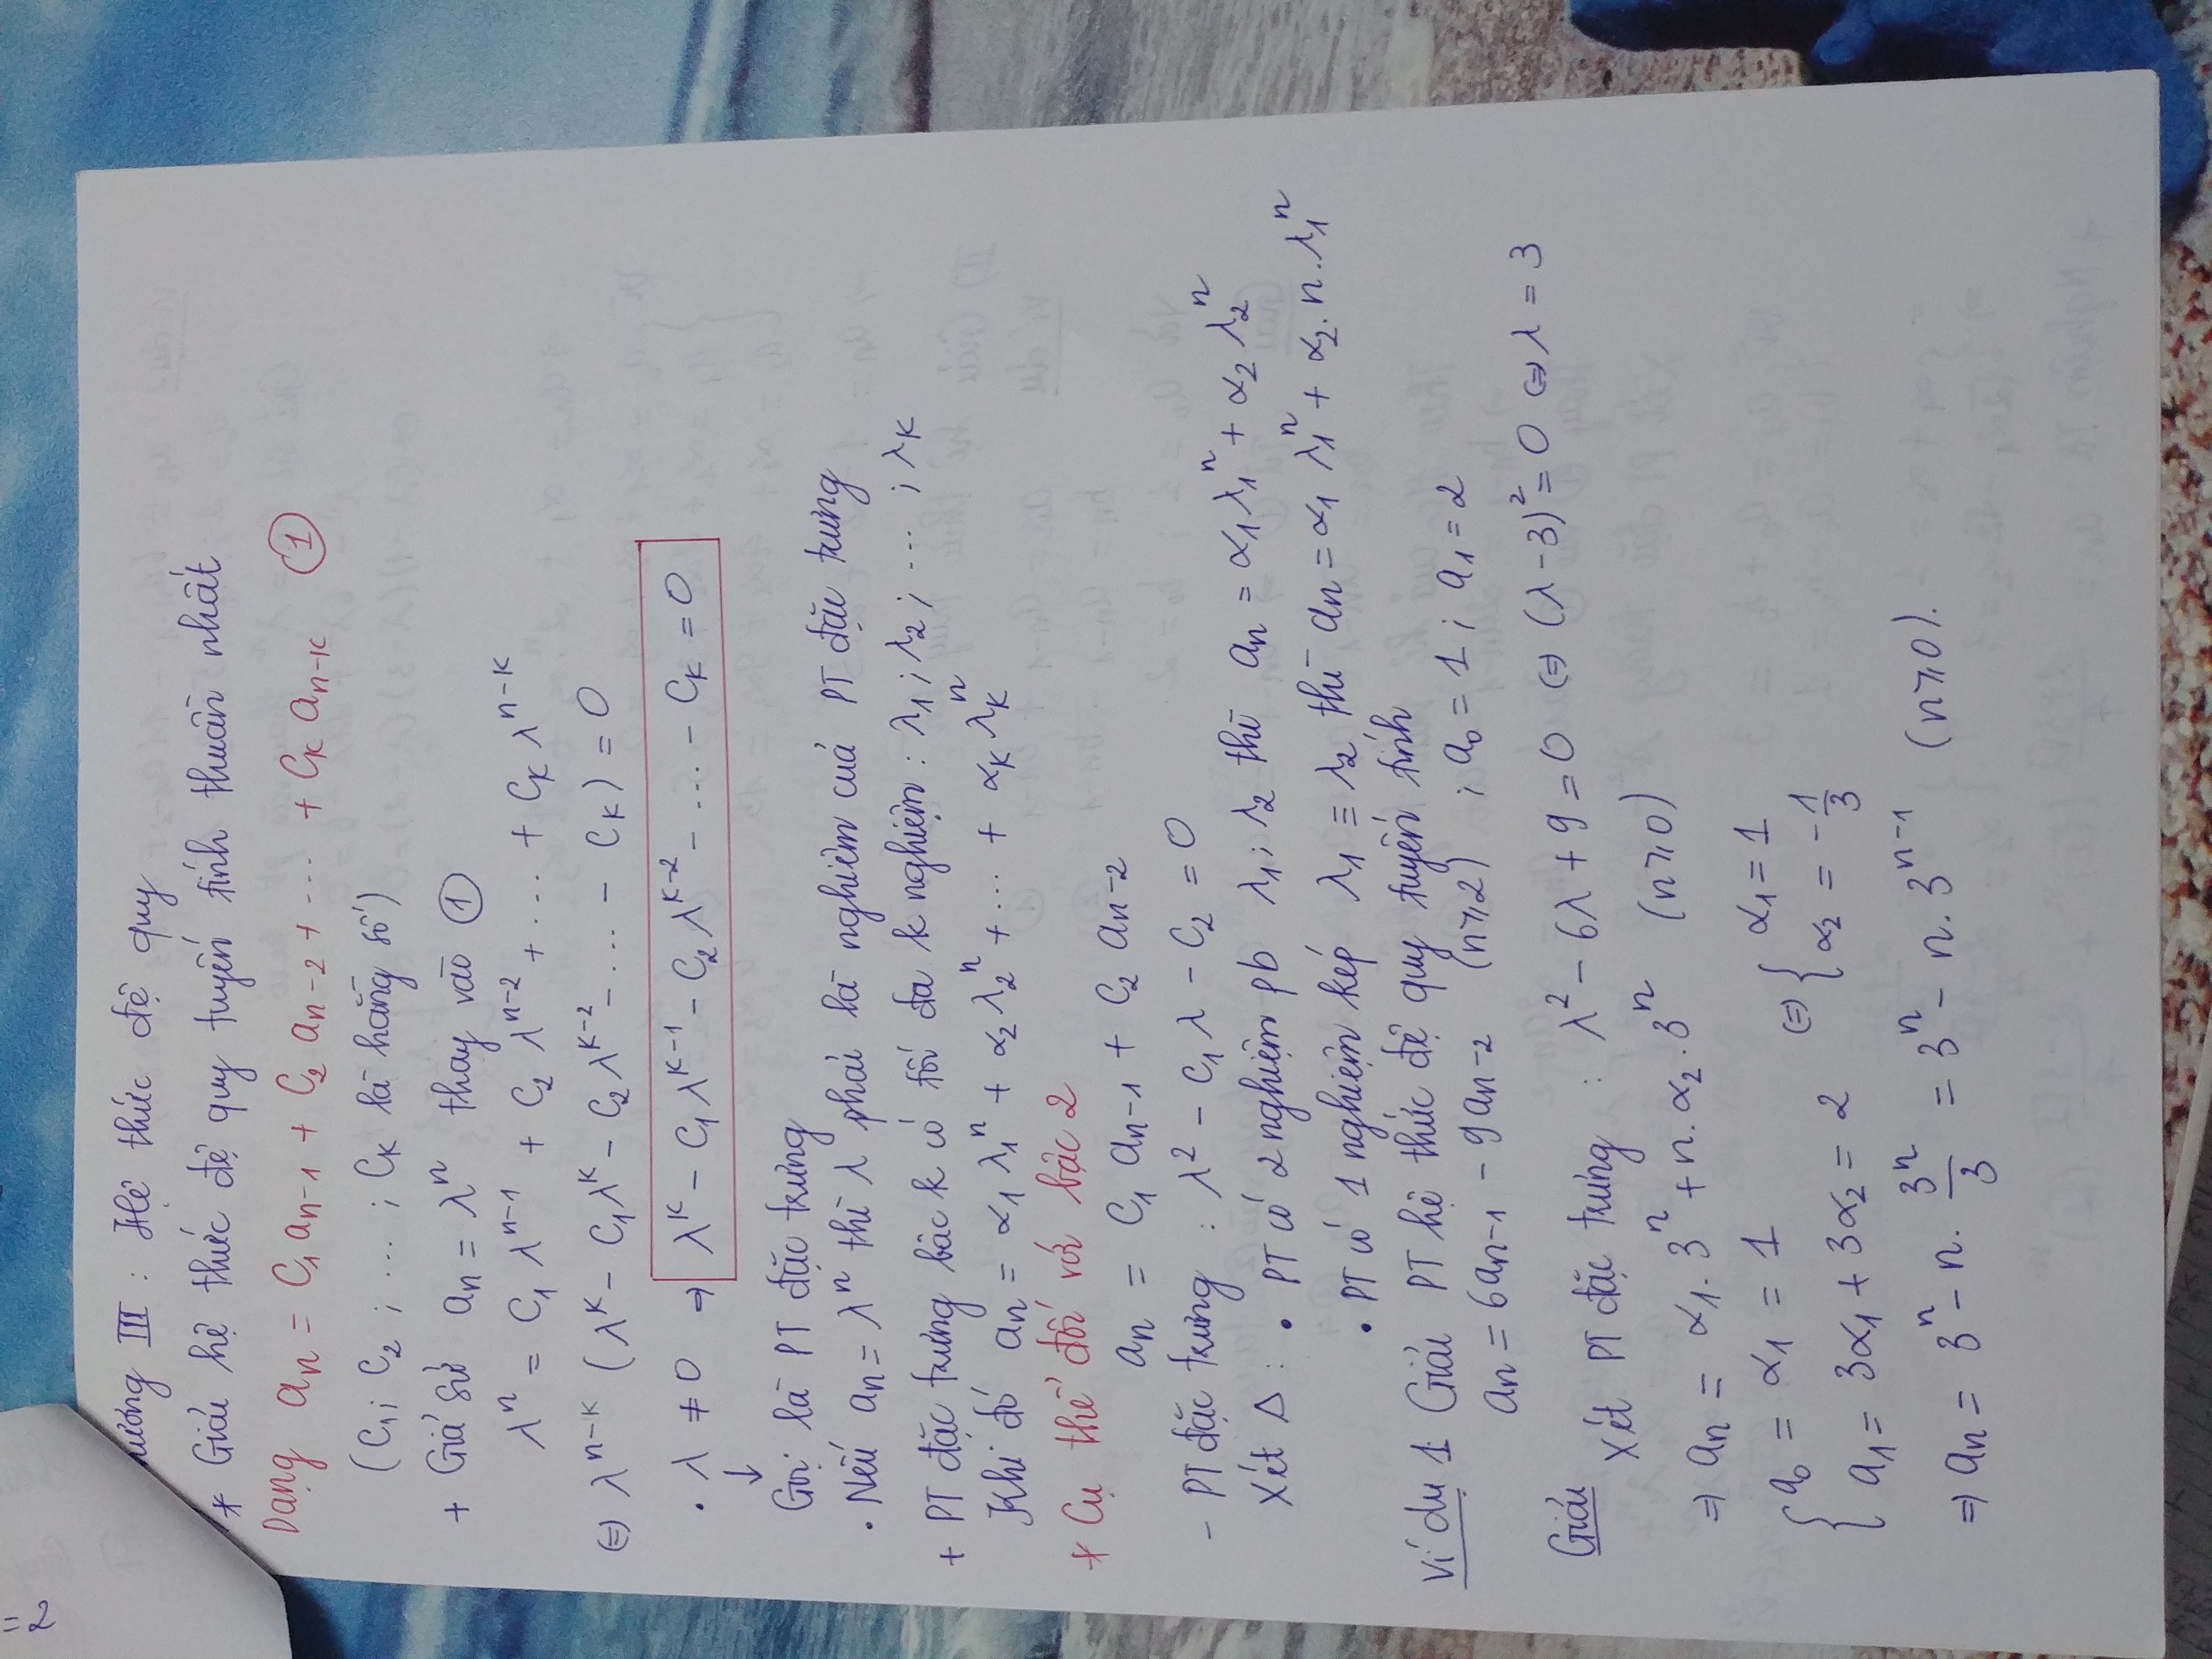 =2
ương III : Hệ thức đệ quy
* Giải hệ thức đệ quy tuyến tính thuần nhất
Dạng aₙ = C₁ aₙ₋₁ + C₂ aₙ₋₂ + ... + Cₖ aₙ₋ₖ ①
(C₁; C₂ ; ... ; Cₖ là hằng số)
+ Giả sử aₙ = λⁿ thay vào ①
λⁿ = C₁ λⁿ⁻¹ + C₂ λⁿ⁻² + ... + Cₖ λⁿ⁻ᵏ
⇔ λⁿ⁻ᵏ (λᵏ - C₁λᵏ - C₂λᵏ⁻² - ... - Cₖ) = 0
. λ ≠ 0 ⇒ λᵏ - C₁λᵏ⁻¹ - C₂λᵏ⁻² - ... - Cₖ = 0
↓
Gọi là PT đặc trưng
. Nếu aₙ = λⁿ thì λ phải là nghiệm của PT đặc trưng
+ PT đặc trưng bậc k có tối đa k nghiệm : λ₁ ; λ₂ ; ... ; λₖ
Khi đó aₙ = α₁ λ₁ⁿ + α₂ λ₂ⁿ + ... + αₖ λₖⁿ
* Cụ thể đối với bậc 2
aₙ = C₁ aₙ₋₁ + C₂ aₙ₋₂
- PT đặc trưng : λ² - C₁ λ - C₂ = 0
Xét Δ : • PT có 2 nghiệm pb λ₁ ; λ₂ thì aₙ = α₁ λ₁ⁿ + α₂ λ₂ⁿ
• PT có 1 nghiệm kép λ₁ ≡ λ₂ thì aₙ = α₁ λ₁ⁿ + α₂. n. λ₁ⁿ
Ví dụ 1: Giải PT hệ thức đệ quy tuyến tính
aₙ = 6aₙ₋₁ - 9aₙ₋₂ (n⩾2) ; a₀ = 1 ; a₁ = 2
Giải
Xét PT đặc trưng : λ² - 6λ + 9 = 0 ⇔ (λ - 3)² = 0 ⇔ λ = 3
⇒ aₙ = α₁. 3ⁿ + n. α₂. 3ⁿ (n⩾0)
{ a₀ = α₁ = 1 ⇔ { α₁ = 1
a₁ = 3α₁ + 3α₂ = 2 α₂ = -1/3
⇒ aₙ = 3ⁿ - n. 3ⁿ/3 = 3ⁿ - n. 3ⁿ⁻¹ (n⩾0).